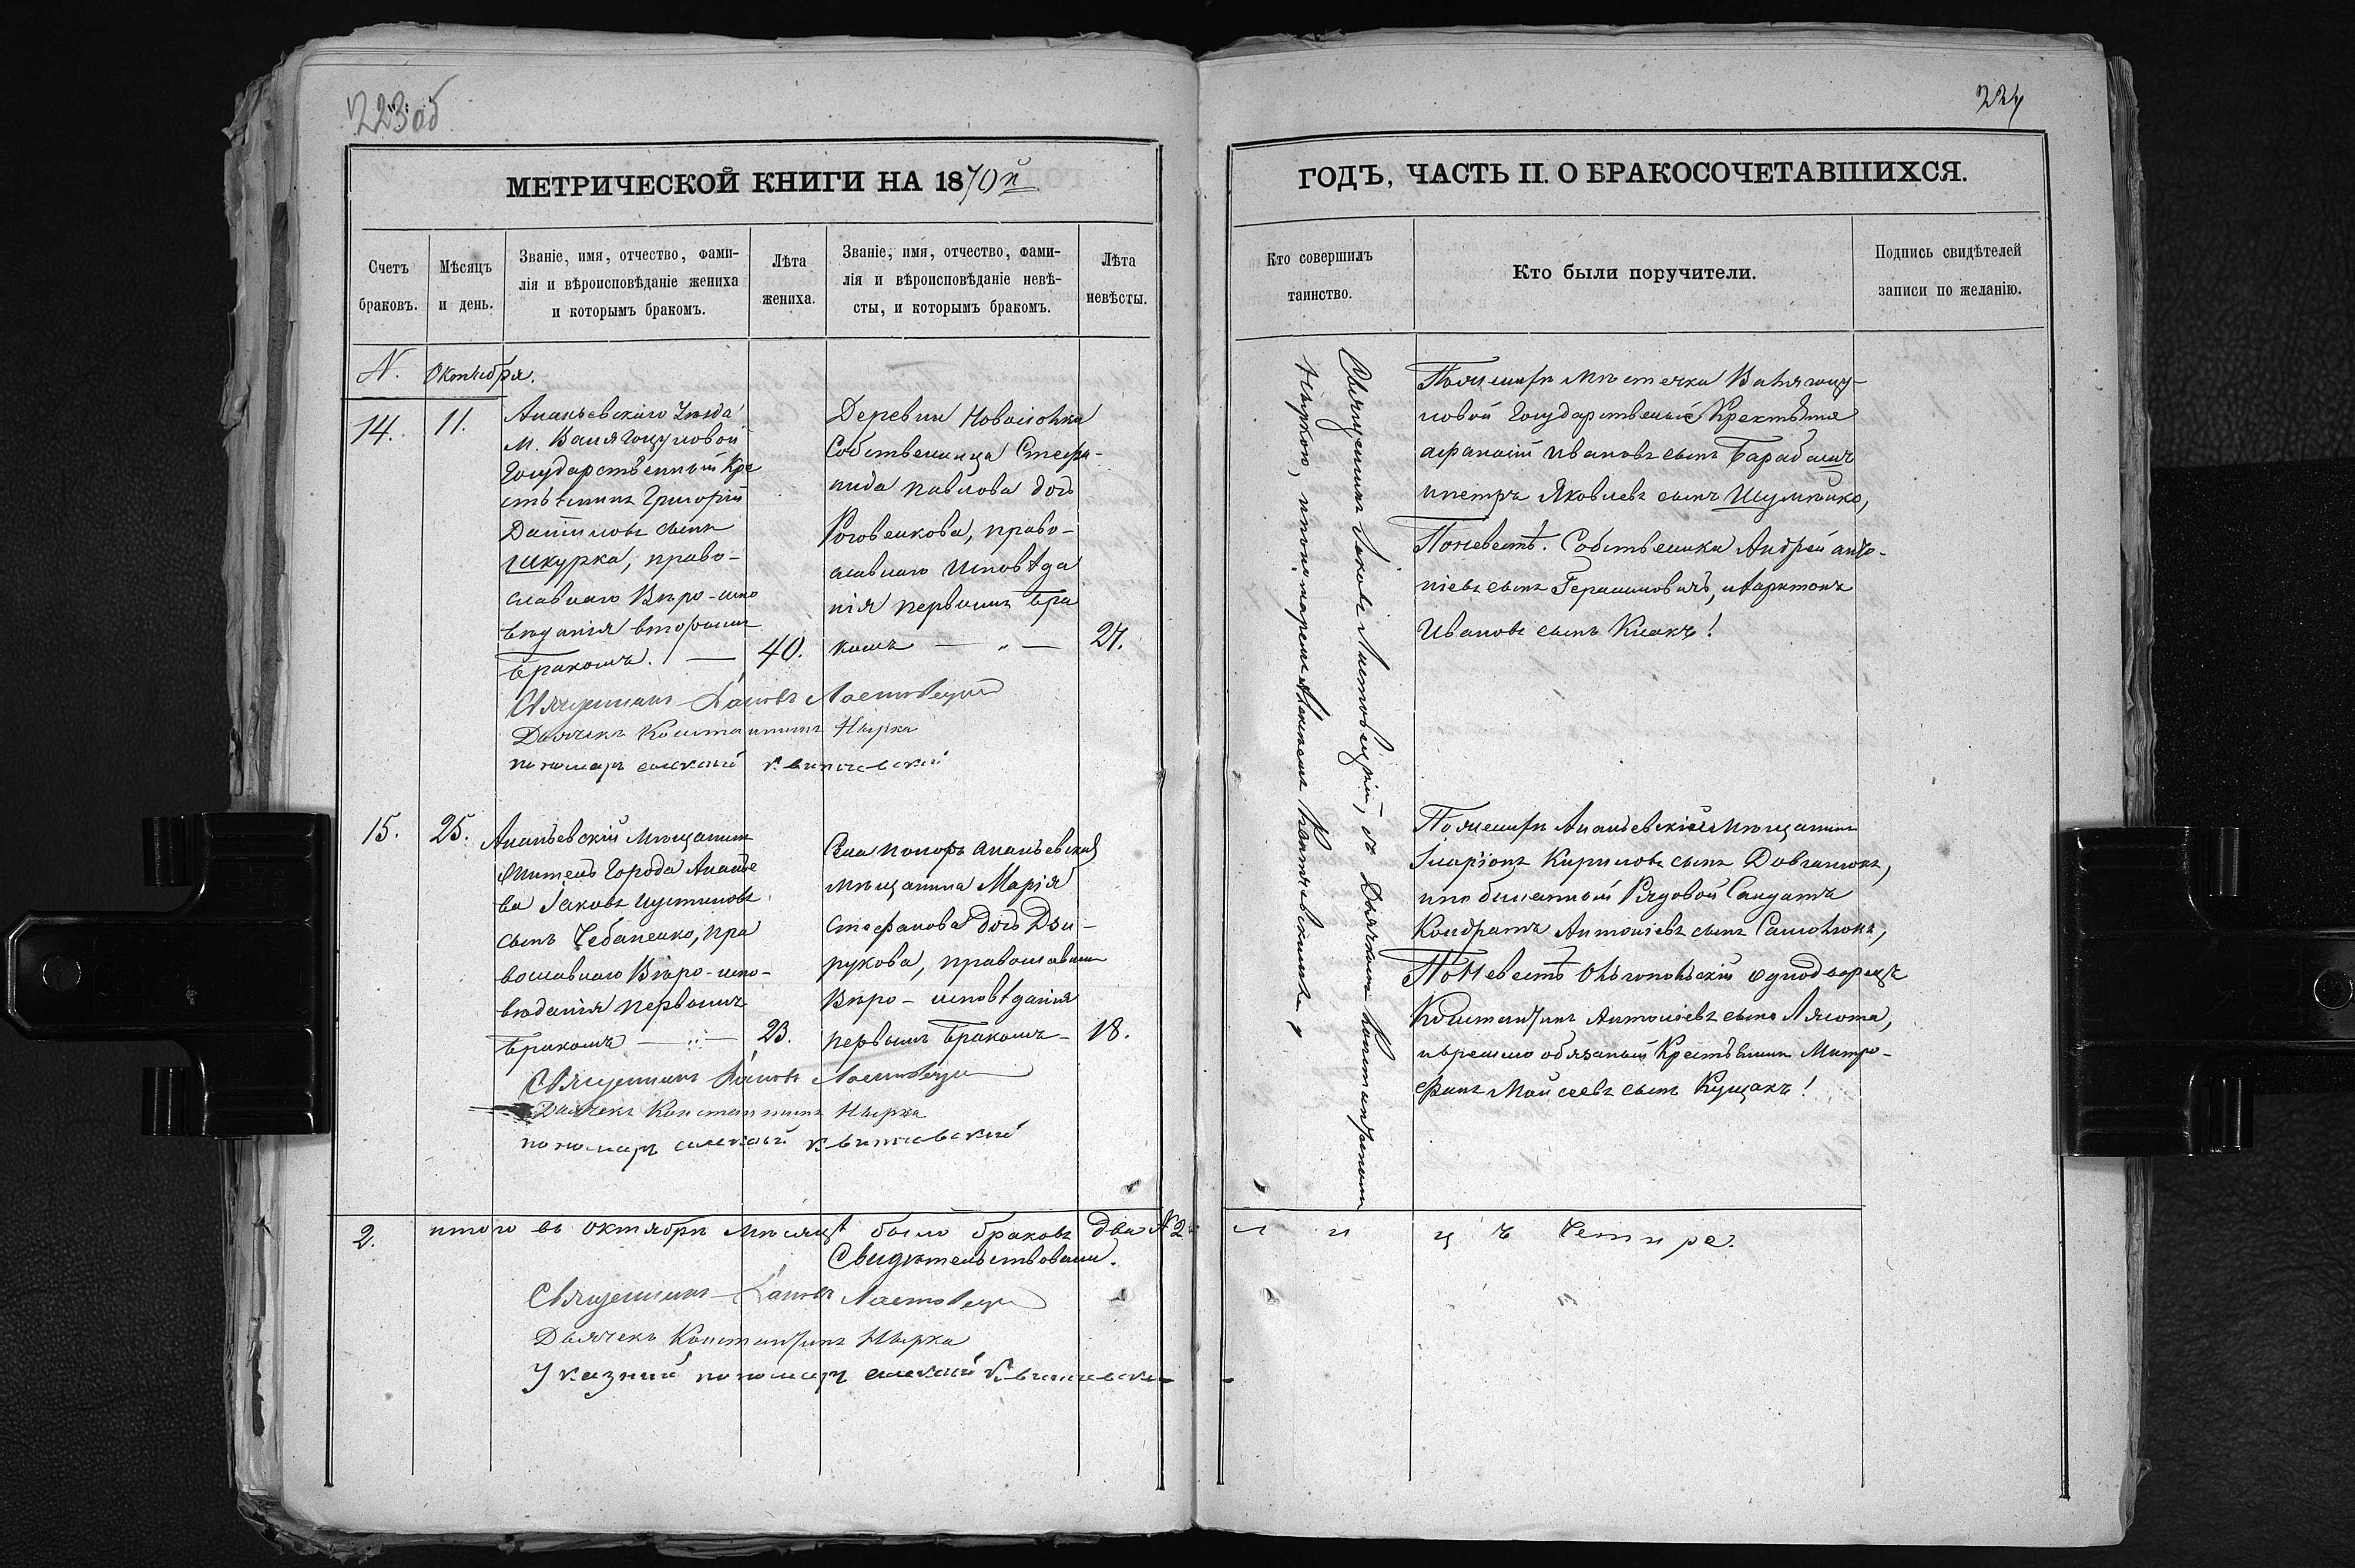 223 об
МЕТРИЧЕСКОЙ КНИГИ НА 1870й
Счетъ браковъ.
Мѣсяцъ и день.
Званіе, имя, отчество, фами-
лія и вѣроисповѣданіе жениха
и которымъ бракомъ.
Лѣта жениха.
Званіе, имя, отчество, фами-
лія и вѣроисповѣданіе невѣ-
сты, и которымъ бракомъ.
Лѣта невѣсты.
N. Октября.
14. 11.
Ананьевскаго Уѣзда
М. Валягоцуловой
Государственный Кре
стьянинъ Григорій
Даниловъ сынъ
Шкурка, право-
славнаго Вѣро-испо
вѣданія вторымъ
бракомъ. — 40.
Деревни
Собственница Стефа-
нида Павлова дочь
Роговенкова, право-
славнаго Исповѣда
нія первымъ бра
комъ — „ — 24.
Священникъ Іаковъ Листовецкій
Дьячекъ Константинъ Нырка
пономарь Алексій Квятневскій
15. 25.
Ананьевскій Мѣщанинъ
житель Города Ананье
ва Іаковъ Иустиновъ
сынъ Чебаненко, пра
вославнаго Вѣро-испо-
вѣданія первымъ
бракомъ — „ — 23.
Села Ананьевская
мѣщанина Марія
Стефанова дочь Дзи-
рукова, православнаго
Вѣро-исповѣданія
первымъ бракомъ — 18.
Священникъ Іаковъ Листовецкій
Дьячекъ Константинъ Нырка
пономарь Алексій Квятневскій
2. итого въ октябрѣ мѣсяцѣ было браковъ два №2.
Свидѣтельствовали.
Священникъ Іаковъ Листовецкій
Дьячекъ Константинъ Нырка
Указный пономарь Алексій Квятневскій
224
ГОДЪ, ЧАСТЬ II. О БРАКОСОЧЕТАВШИХСЯ.
Кто совершилъ таинство.
Кто были поручители.
Подпись свидѣтелей
записи по желанію.
Священникъ Іаковъ Листовецкій, съ Дьячкомъ Константиномъ
Ныркою, и пономаремъ Алексіемъ Квятневскимъ
По женихѣ мѣстечка Валягоцу-
ловой Государственные Крестьяне
Афанасій Ивановъ сынъ Барабашъ
и Петръ Яковлевъ сынъ Шумейко,
По невестѣ. Собственики Андрей Анто-
ніевъ сынъ Герасимовичъ, и Харитонъ
Ивановъ сынъ Кисакъ!
По женихѣ Ананьевскій Мѣщанинъ
Іларіонъ Кириловъ сынъ Довганюкъ,
Рядовой Салдатъ
Кондратъ Антоніевъ сынъ Самотюкъ,
По Невестѣ Ольгопольскій однодворецъ
Константинъ Антоніевъ сынъ Лясота,
и времено обязаный Крестьянинъ Митро-
фанъ Мойсеевъ сынъ Кущакъ!
л и ц ъ Четире.